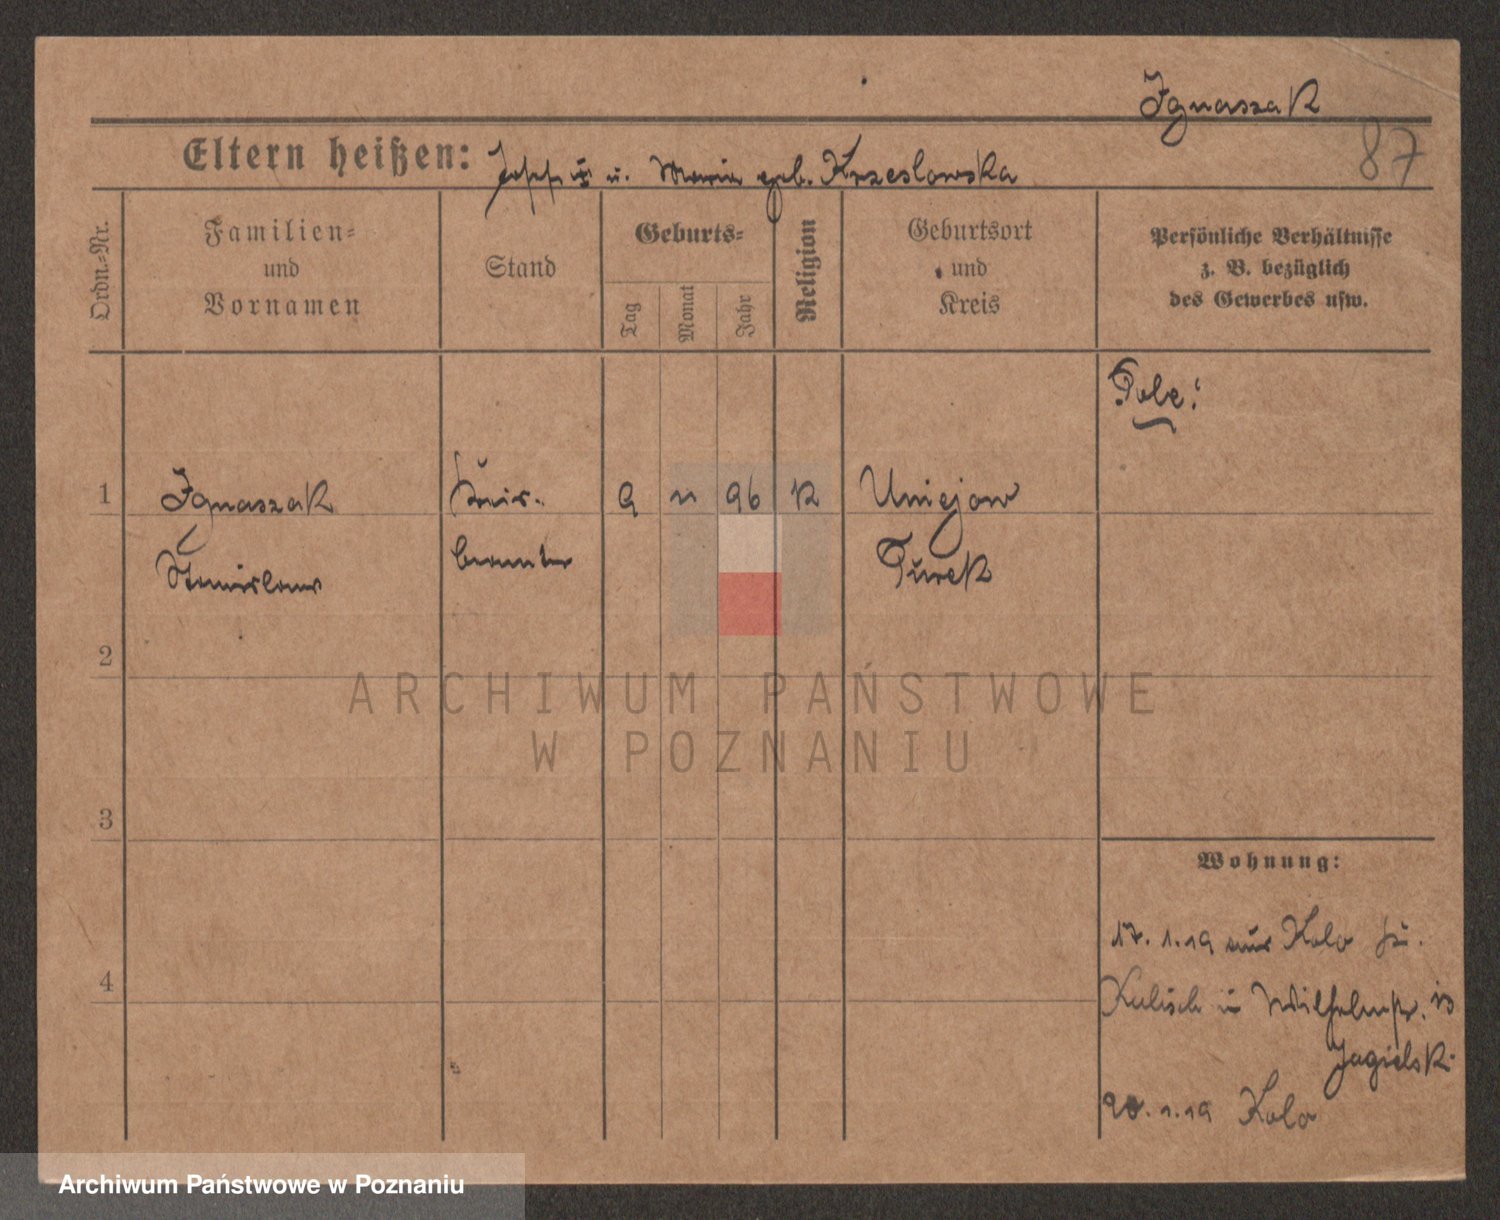 Ignaszak
87
Eltern heißen: Joseph u. Maria geb. Krzeslowska
Ordn.-Nr.
Familien-
und
Vornamen
Stand
Geburts-
Tag
Monat
Jahr
Religion
Geburtsort
und
Kreis
Persönliche Verhältnisse
z. B. bezüglich
des Gewerbes usw.
Pole!
1 Ignaszak 9 11 96 K Uniejow
Stanislaus beamter Turek
2
ARCHIWUM PAŃSTWOWE
W POZNANIU
3
Wohnung:
17. 1. 19 aus Kolo
4
Kalisch Wilhelmstr. 13
Jagielski
20. 1. 19 Kolo
Archiwum Państwowe w Poznaniu